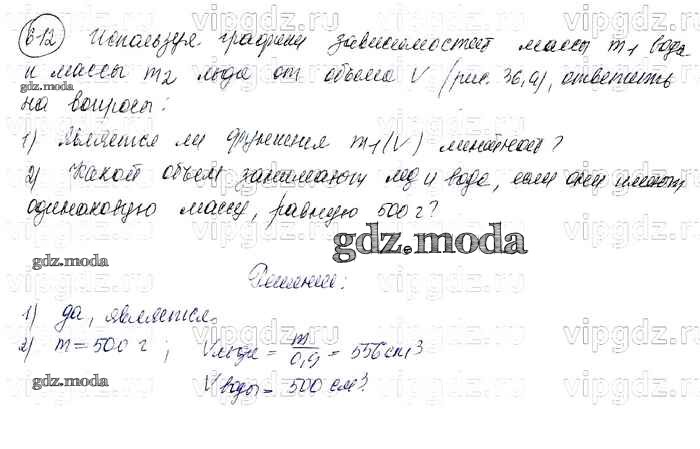 612 Используя графики зависимостей массы m1 воды
и массы m2 льда от объема V (рис. 36,а), ответить
gdz.moda
на вопросы:
1) Является ли функция m1(V) линейной?
2) Какой объем занимают лед и вода, если они имеют
одинаковую массу, равную 500 г?
gdz.moda
gdz.moda
Решение:
1) да, является.
2) m = 500 г ; Vльда = m/0,9 = 556 cm3
gdz.moda
Vводы = 500 см3.